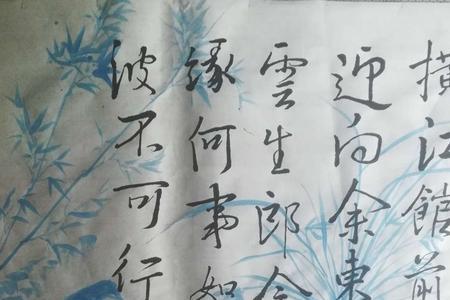 橫江館前
迎向余東
雲生郎今
緣何事如
波不可行